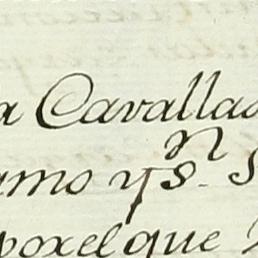 a Cavallas
amo y S.n S
poxel que